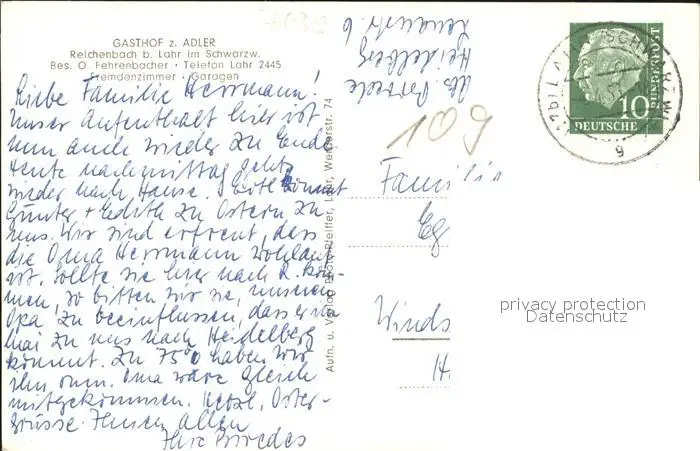 GASTHOF z. ADLER
Reichenbach b. Lahr im Schwarzw.
Bes. O. Fehrenbacher · Telefon Lahr 2445
Fremdenzimmer · Garagen
Liebe Familie Herrmann!
Unser Aufenthalt hier ist
nun auch wieder zu Ende
Heute nachmittag gehts
wieder nach Hause. kommt
Günter + Edith zu Ostern zu
uns. Wir sind erfreut, dass
die Oma Herrmann wohlauf
ist. Sollte sie hier nach L. kom-
men, so bitten wir sie, unseren
Opa zu beeinflussen, dass er
mal zu uns nach Heidelberg
kommt. Zu 75 haben wir
ihn Oma wäre gleich
mitgekommen. Herzl. Oster-
grüsse Ihnen allen
Ihre
Aufn. u. Verlag Foto-Pfeiffer, Lahr, Werderstr. 74
Abs.
Heidelberg
6
109
Famili
Eg
Winds
H
10
DEUTSCHE
BUNDESPOST
LAHR (SCHWARZW)
g
privacy protection
Datenschutz